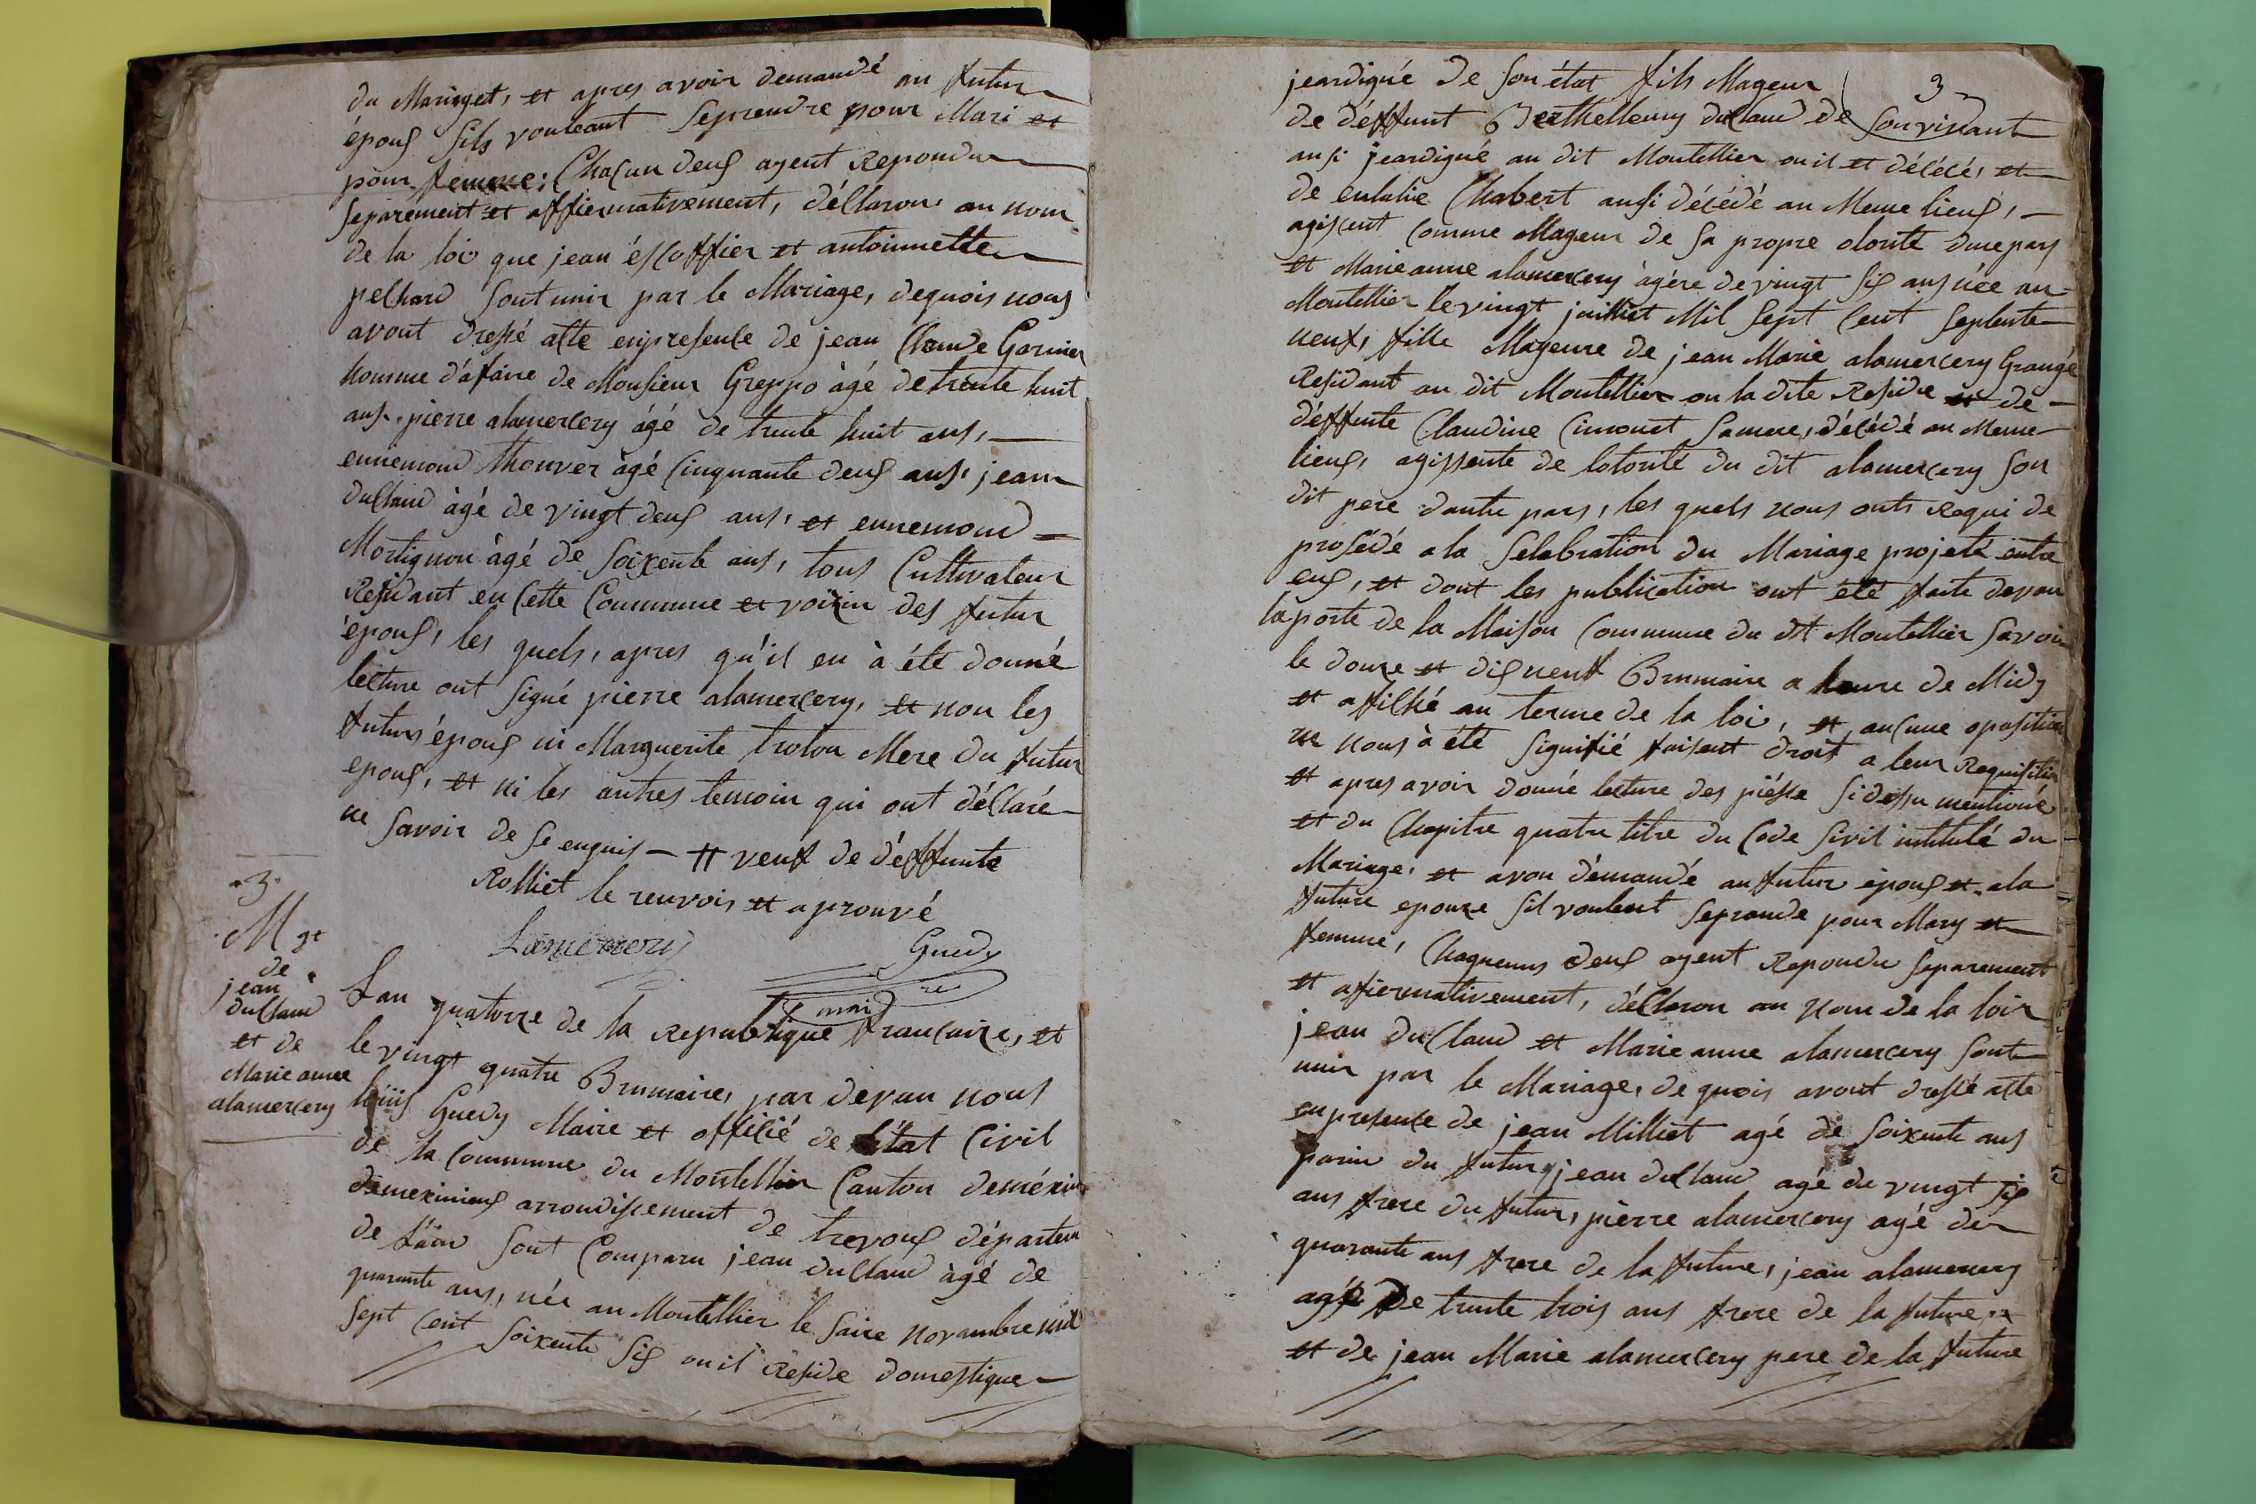 du Mariaget, et apres avoir demandé au futur
épous sils vouleant seprendre pour Mari et
pour femme; Chacun deus ayent Repondu
séparement et affiermativement, déclaron au nom
de la loi que jean éscoffier et antoinnette
pelhard sont unir par le Mariage, dequois nous
avont dressé atte enpresente de jean Claude Garnier
homme d'afaire de Monsieur Greppo àgé detrente huit
ans, pierre alamercery ágé de trente huit ans,
ennemond thouver àgé Cinquante deus ans, jean
duclaud àgé de vingt deus ans, et ennemond =
Mortignon àgé de soixente ans, tous Cultivateur
Residant en Cette Commune et voizin des futur
épous, les quels, apres qu'il en à été donné
lecture ont signé pierre alamercery, et non les
futurs épous ni Marguerite trolon Mere du futur
epous, et ni les autres temoin qui ont déclaré
ne savoir de se enquis - # veuf de déffunte
Rolliet le renvois et aprouvé
Lamercery Guedy
maire
3
M gt
de
jean
duclaud
et de
Marie anne
alamercery
Lan quatorze de la Republique francaize, et
le vingt quatre Brumaire, par devan nous
loüis Guedy Maire et officié de létat Civil
de la Commune du Montellier Canton demexi
demeximieus arrondissement de trevous départem
de L'ain sont Comparu jean duclaud àgé de
quarante ans, née au Montellier le saize novambre mil
sept cent soixente six ou il Reside domestique
3
jeardigné de son état fils Mageur
de déffunt Berthellemy duclaud de sonvivant
ausi jeardigné au dit Montellier ou il et décécé, et
de eulalie Chabert ausi décédé au Meme lieus,
agiscent comme Mageur de sa propre olonté dune pars
et Marie anne alamercery àgére de vingt six ans née au
Montellier le vingt juilliet Mil sept cent septente
neuf, fille Mageure de jean Marie alamercery Grangé
Residant au dit Montellier ou la dite Reside et de
déffunte Claudine Cimonet samere, décédé au Meme
lieus, agissente de lotorité du dit alamercery son
dit pere dautre pars, les quels nous onts Requi de
prosédé a la selebration du Mariage projeté entre
eus, et dont les publication ont été faite devan
laporte de la Maison Commune du dit Montellier savoir
le douze et dis neuf Brumaire a heure de Midy
et affiché au terme de la loi, et aucune oposition
ne nous à été signifié faisent droit a leur Requisition
et apres avoir donné lecture des piésse si dessu mentioné
et du Chapitre quatre titre du Code sivil intitulé du
Mariage, et avon démandé au futur épous et a la
future epouze sil voulent seprende pour Mary et
femme, Chaquenus deus ayent Repondu separement
et afiermativement, déclaron au nom de la loir
jean duclaud et Marie anne alamercery sont
unir par le Mariage, de quois avont dressé atte
enpresente de jean Milliet agé de soixente ans
parin du futur, jean duclaud agé du vingt six
ans frere du futur, pierre alamercery agé de
quarante ans frere de la future, jean alamercery
agé De trente trois ans frere de la future,
et de jean Marie alamercery pere de la future